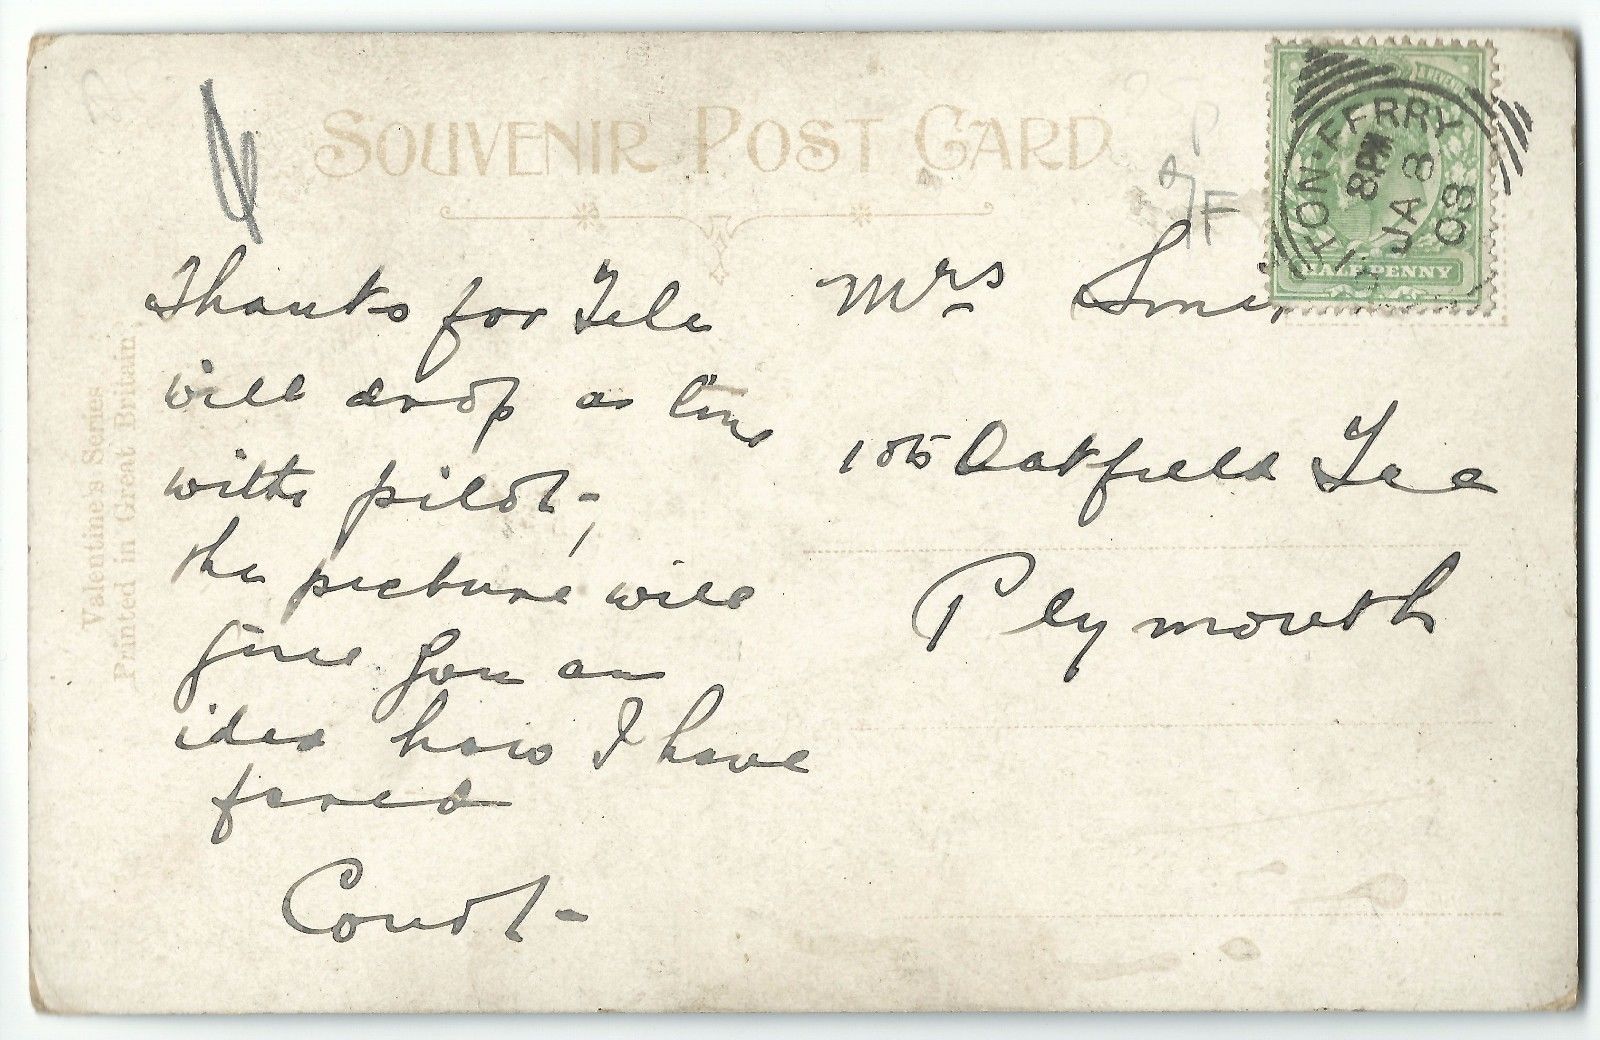 SOUVENIR POST CARD
Valentine's Series
Printed in Great Britain
TON·FERRY
8 PM
JA 8
08
HALFPENNY
F
Thanks for Tele
will drop a line
with pilot,
the picture will
give you an
idea how I have
fared
Mrs
105 Oakfield Tce
Plymouth